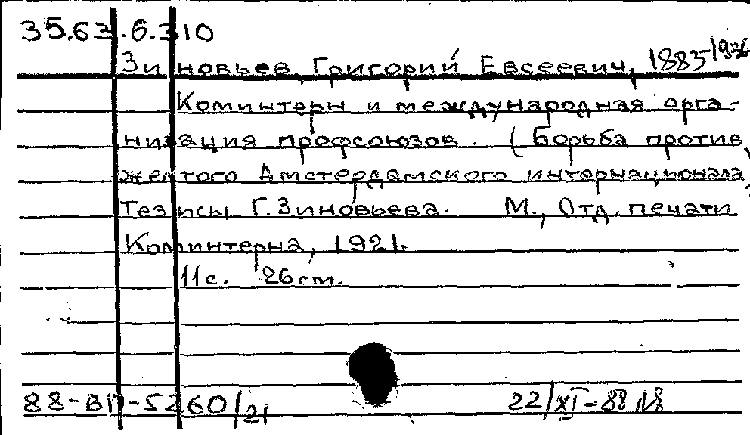 35.63.6.310
Зиновьев, Григорий Евсеевич, 1883-1936
Коминтерн и международная орга-
низация профсоюзов. (Борьба против
желтого Амстердамского интернационала)
Тезисы Г. Зиновьева. М., Отд. печати
Коминтерна, 1921.
11с. 26см.
88-ВП-5260/21 22/XI-88